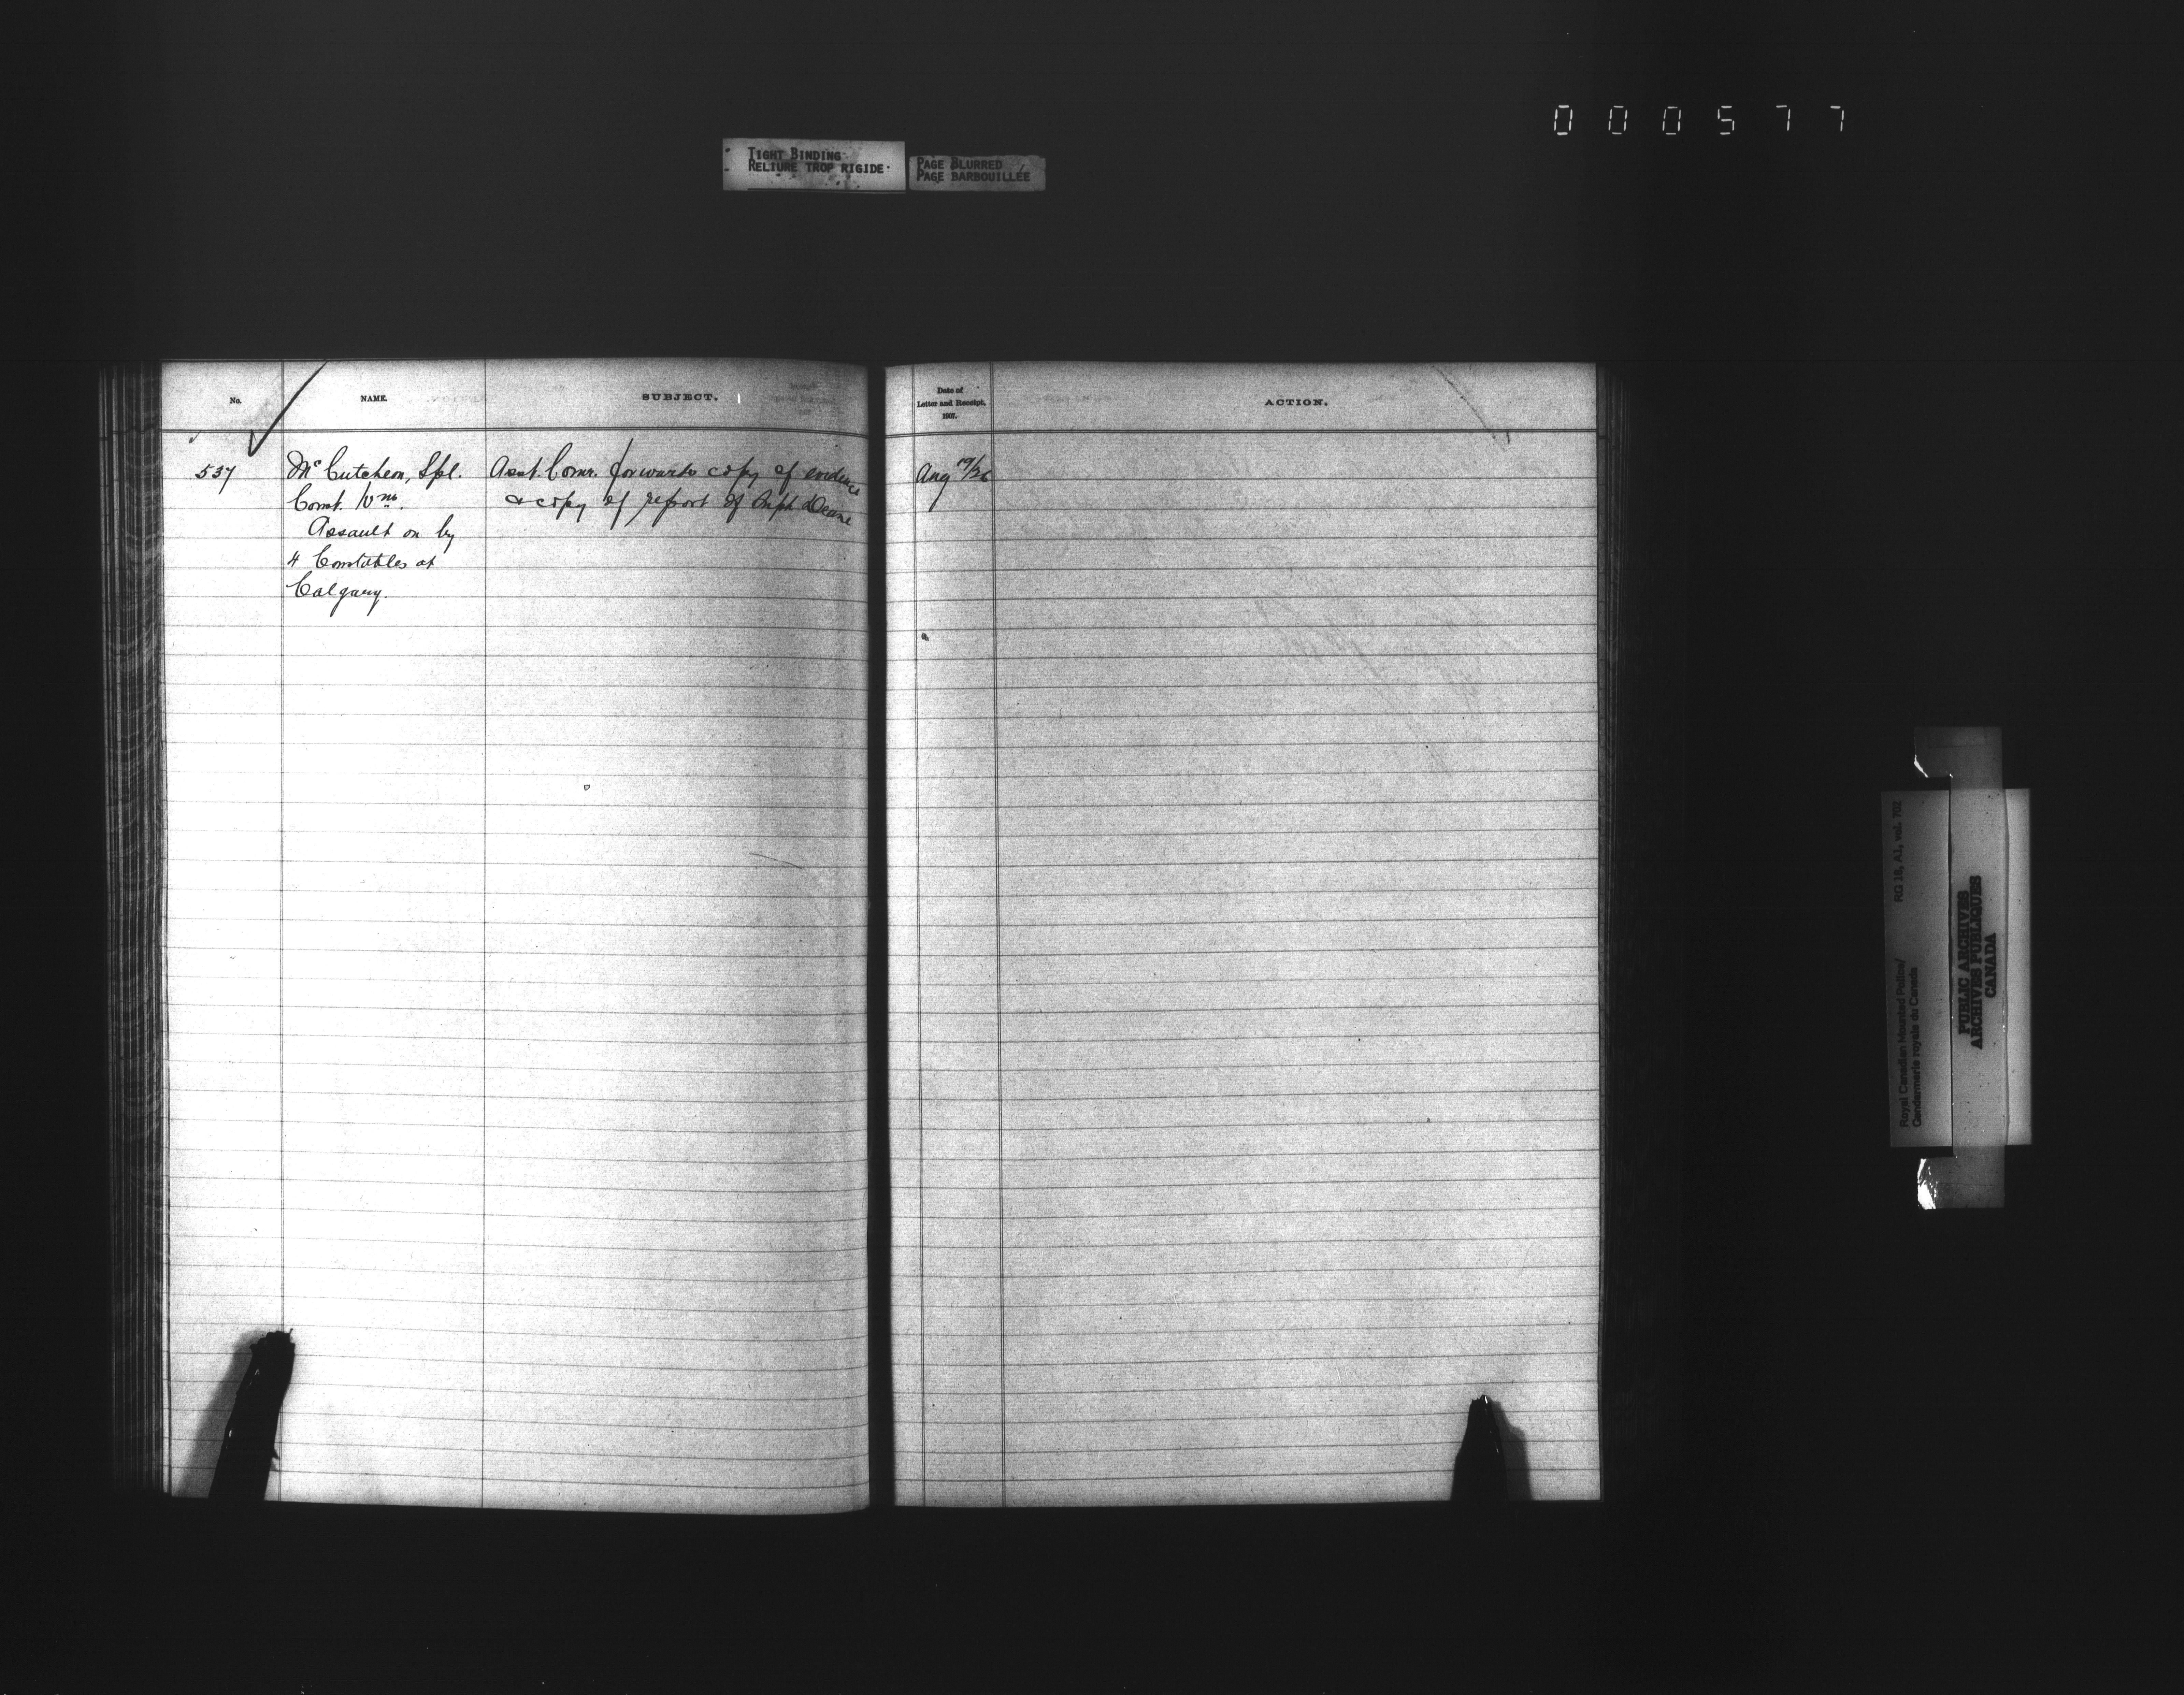 000577
TIGHT BINDING
RELIURE TROP RIGIDE
PAGE BLURRED
PAGE BARBOUILLÉE
No.
NAME.
SUBJECT.
Date of
Letter and Receipt,
1907.
ACTION.
537
Mc Cutcheon, Spl.
Const. Wm.
Assault on by
4 Constables at
Calgary.
Asst. Comr. forwards copy of evidence
& copy of report of Supt Deane
Aug 19/26
Royal Canadian Mounted Police/
Gendarmerie royale du Canada
RG 18, A1, vol. 702
PUBLIC ARCHIVES
ARCHIVES PUBLIQUES
CANADA